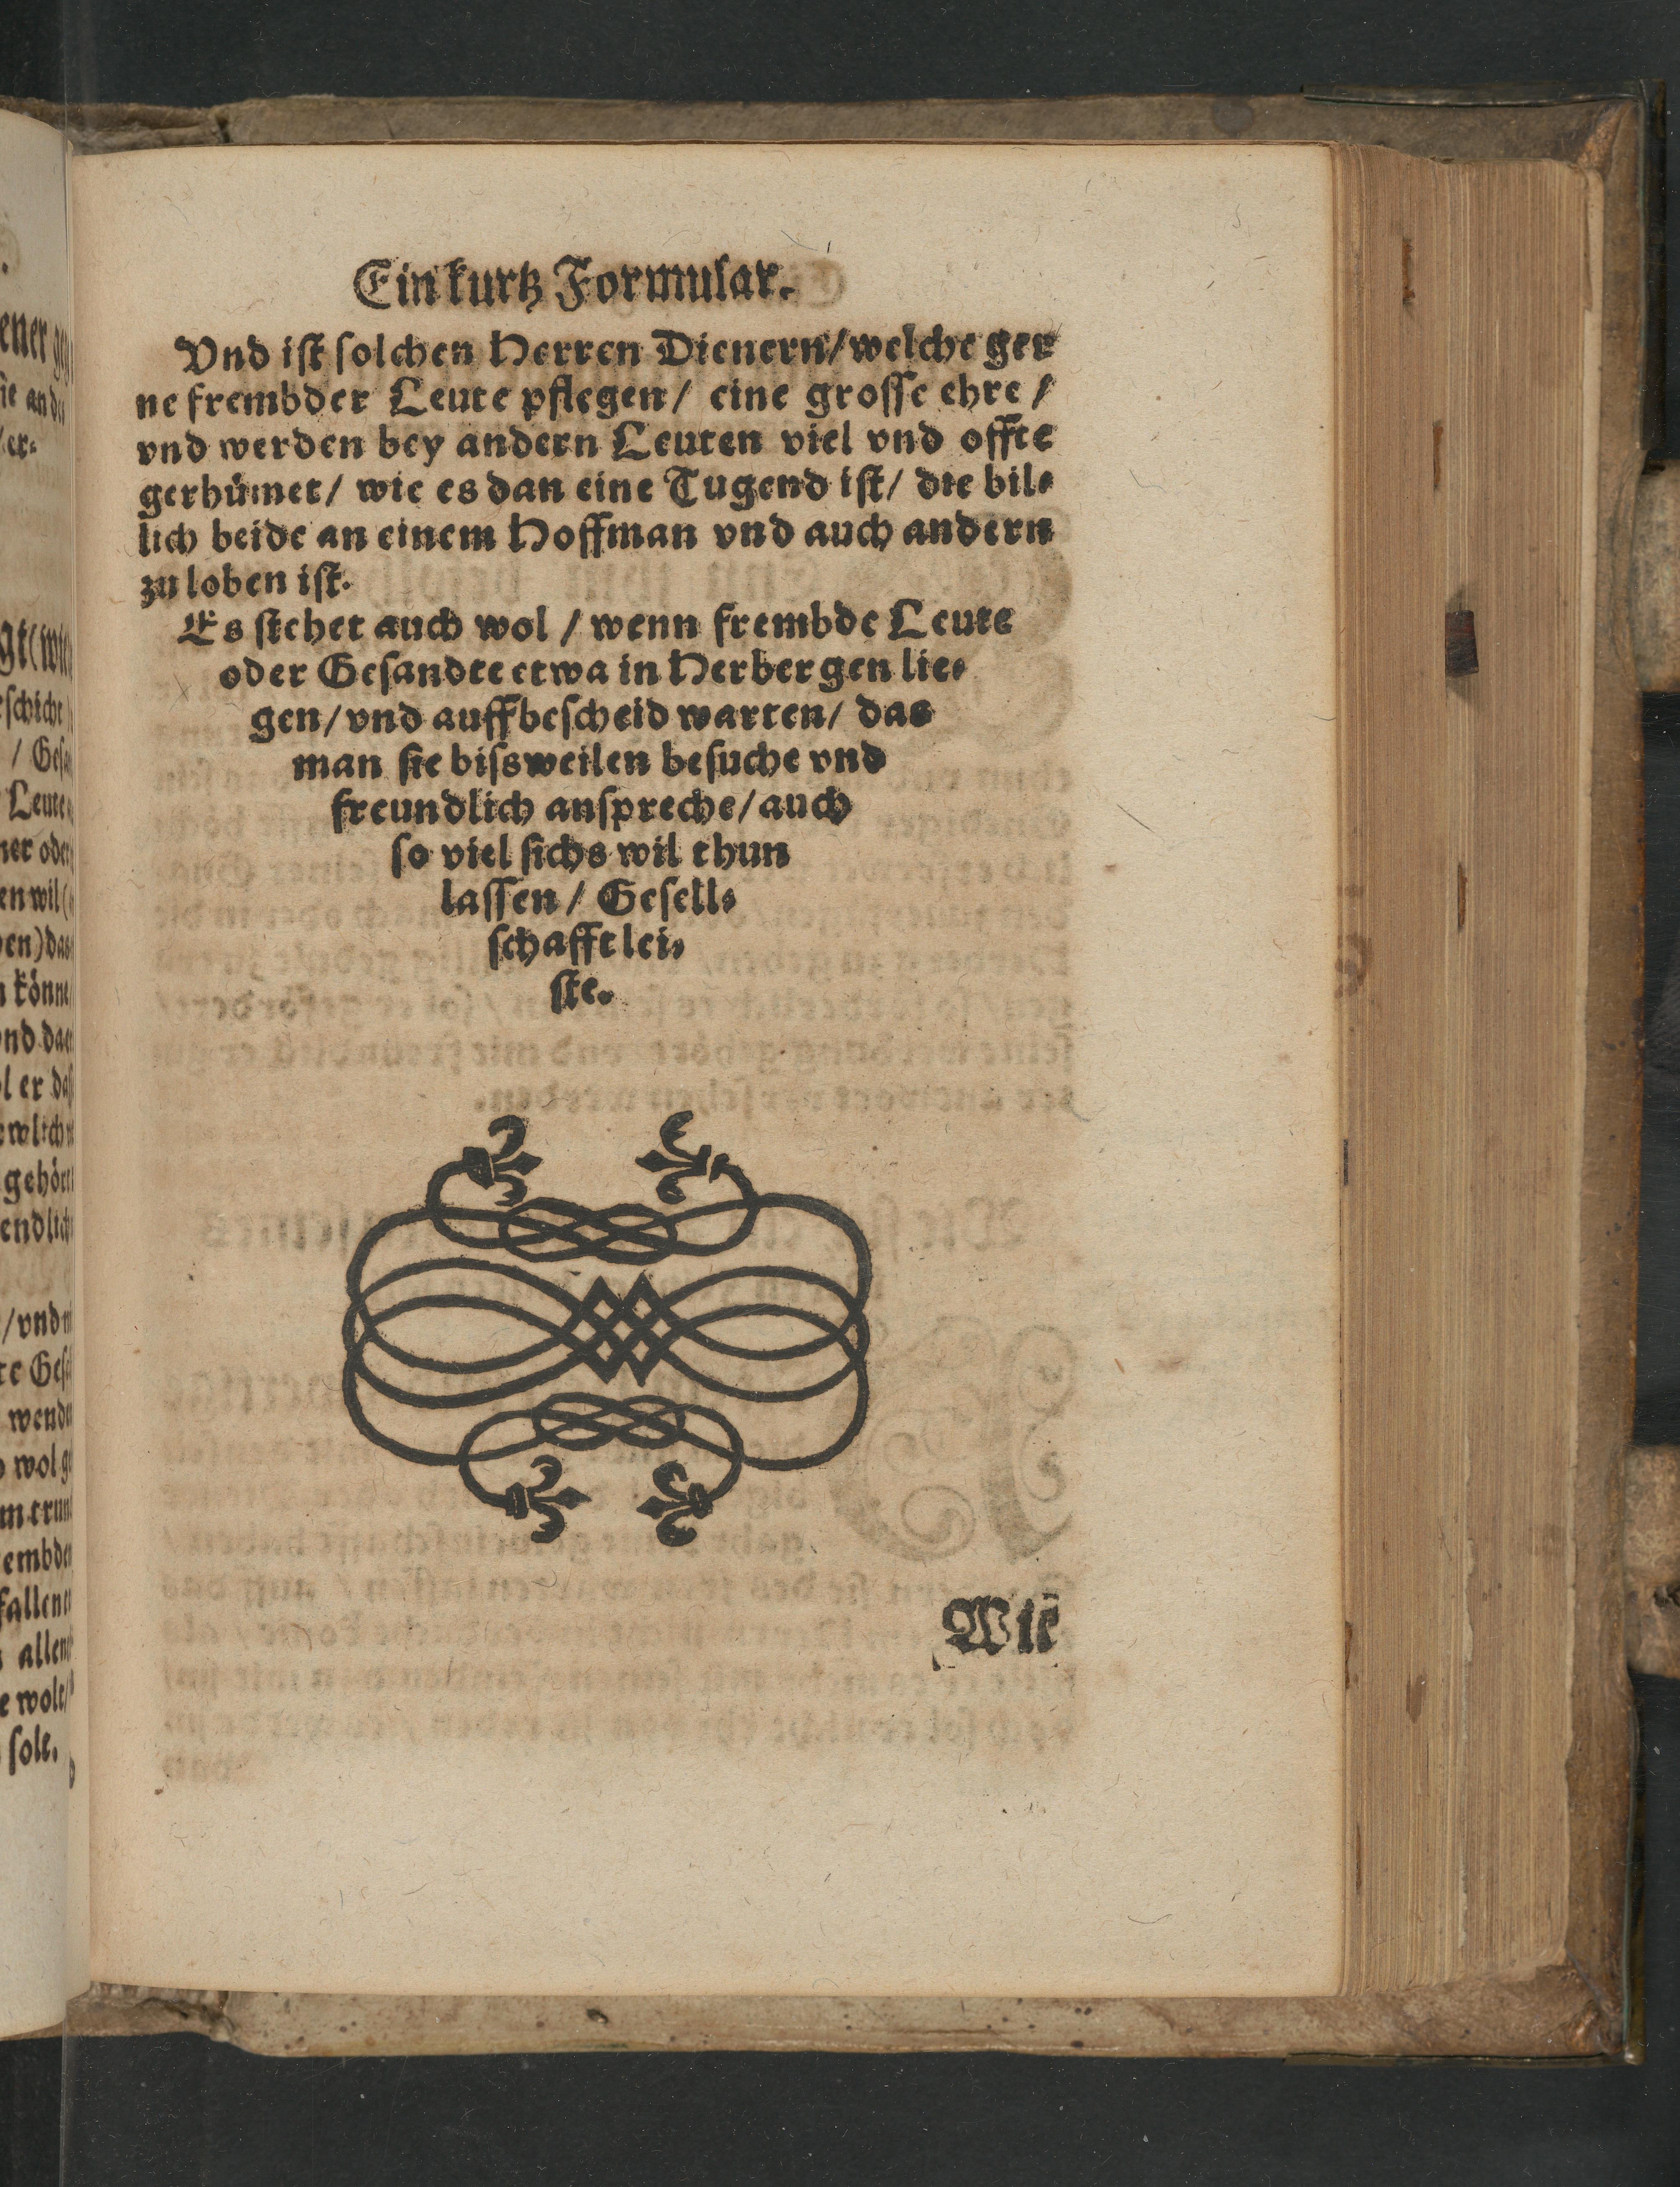 Ein kurtz Formular.
Vnd ist solchen Herren Dienern/welche ger
ne frembder Leute pflegen/ eine grosse ehre /
vnd werden bey andern Leuten viel vnd offte
gerhümet/ wie es dan eine Tugend ist/ die bil-
lich beide an einem Hoffman vnd auch andern
zu loben ist.
Es stehet auch wol / wenn frembde Leute
oder Gesandte etwa in Herbergen lie-
gen/vnd auff bescheid warten/ das
man sie bissweilen besuche vnd
freundlich anspreche/auch
so viel sichs wil thun
lassen / Gesell-
schafft lei-
ste.
Wie